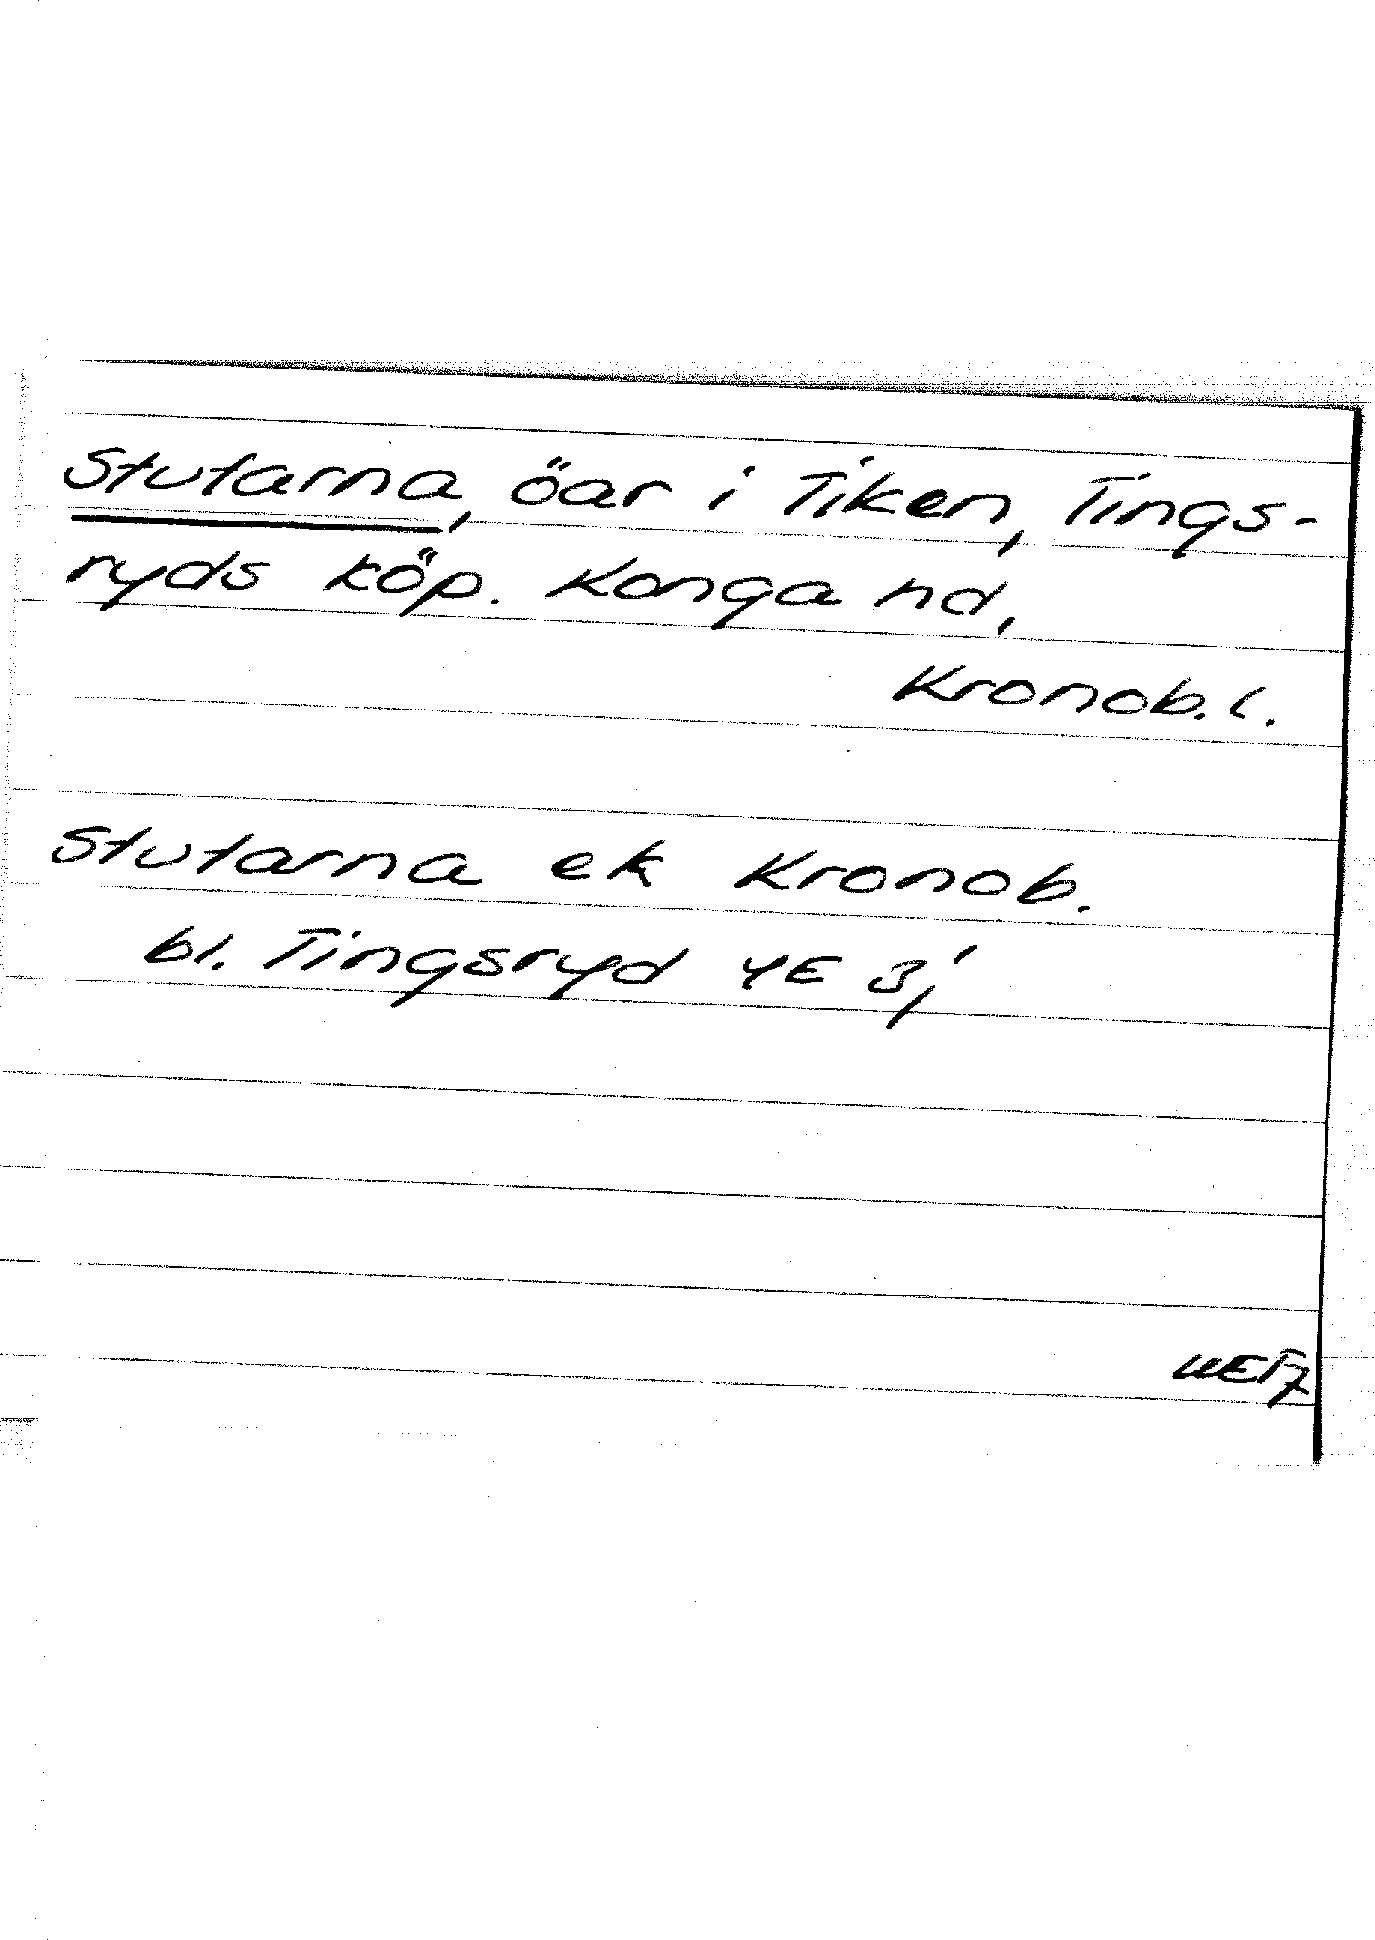 Stutarna, öar i Tiken, Tings-
ryds köp. Konga hd,
Kronob. l.
Stutarna ek Kronob.
bl. Tingsryd 4E 3,'